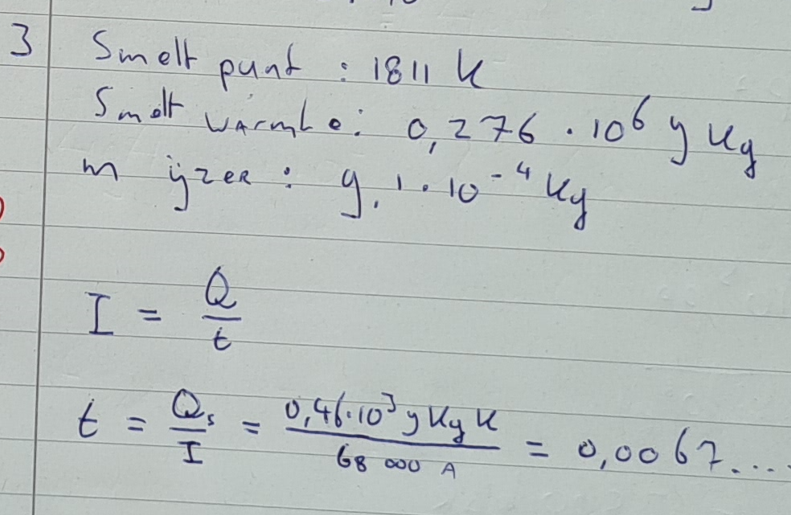 3 Smelt punt : 1811 K
Smelt warmte : 0,276 · 10⁶ J kg
m ijzer : 9,1 · 10⁻⁴ kg
I = Q / t
t = Qs / I = 0,46·10³ J kg K / 68 000 A = 0,0067....